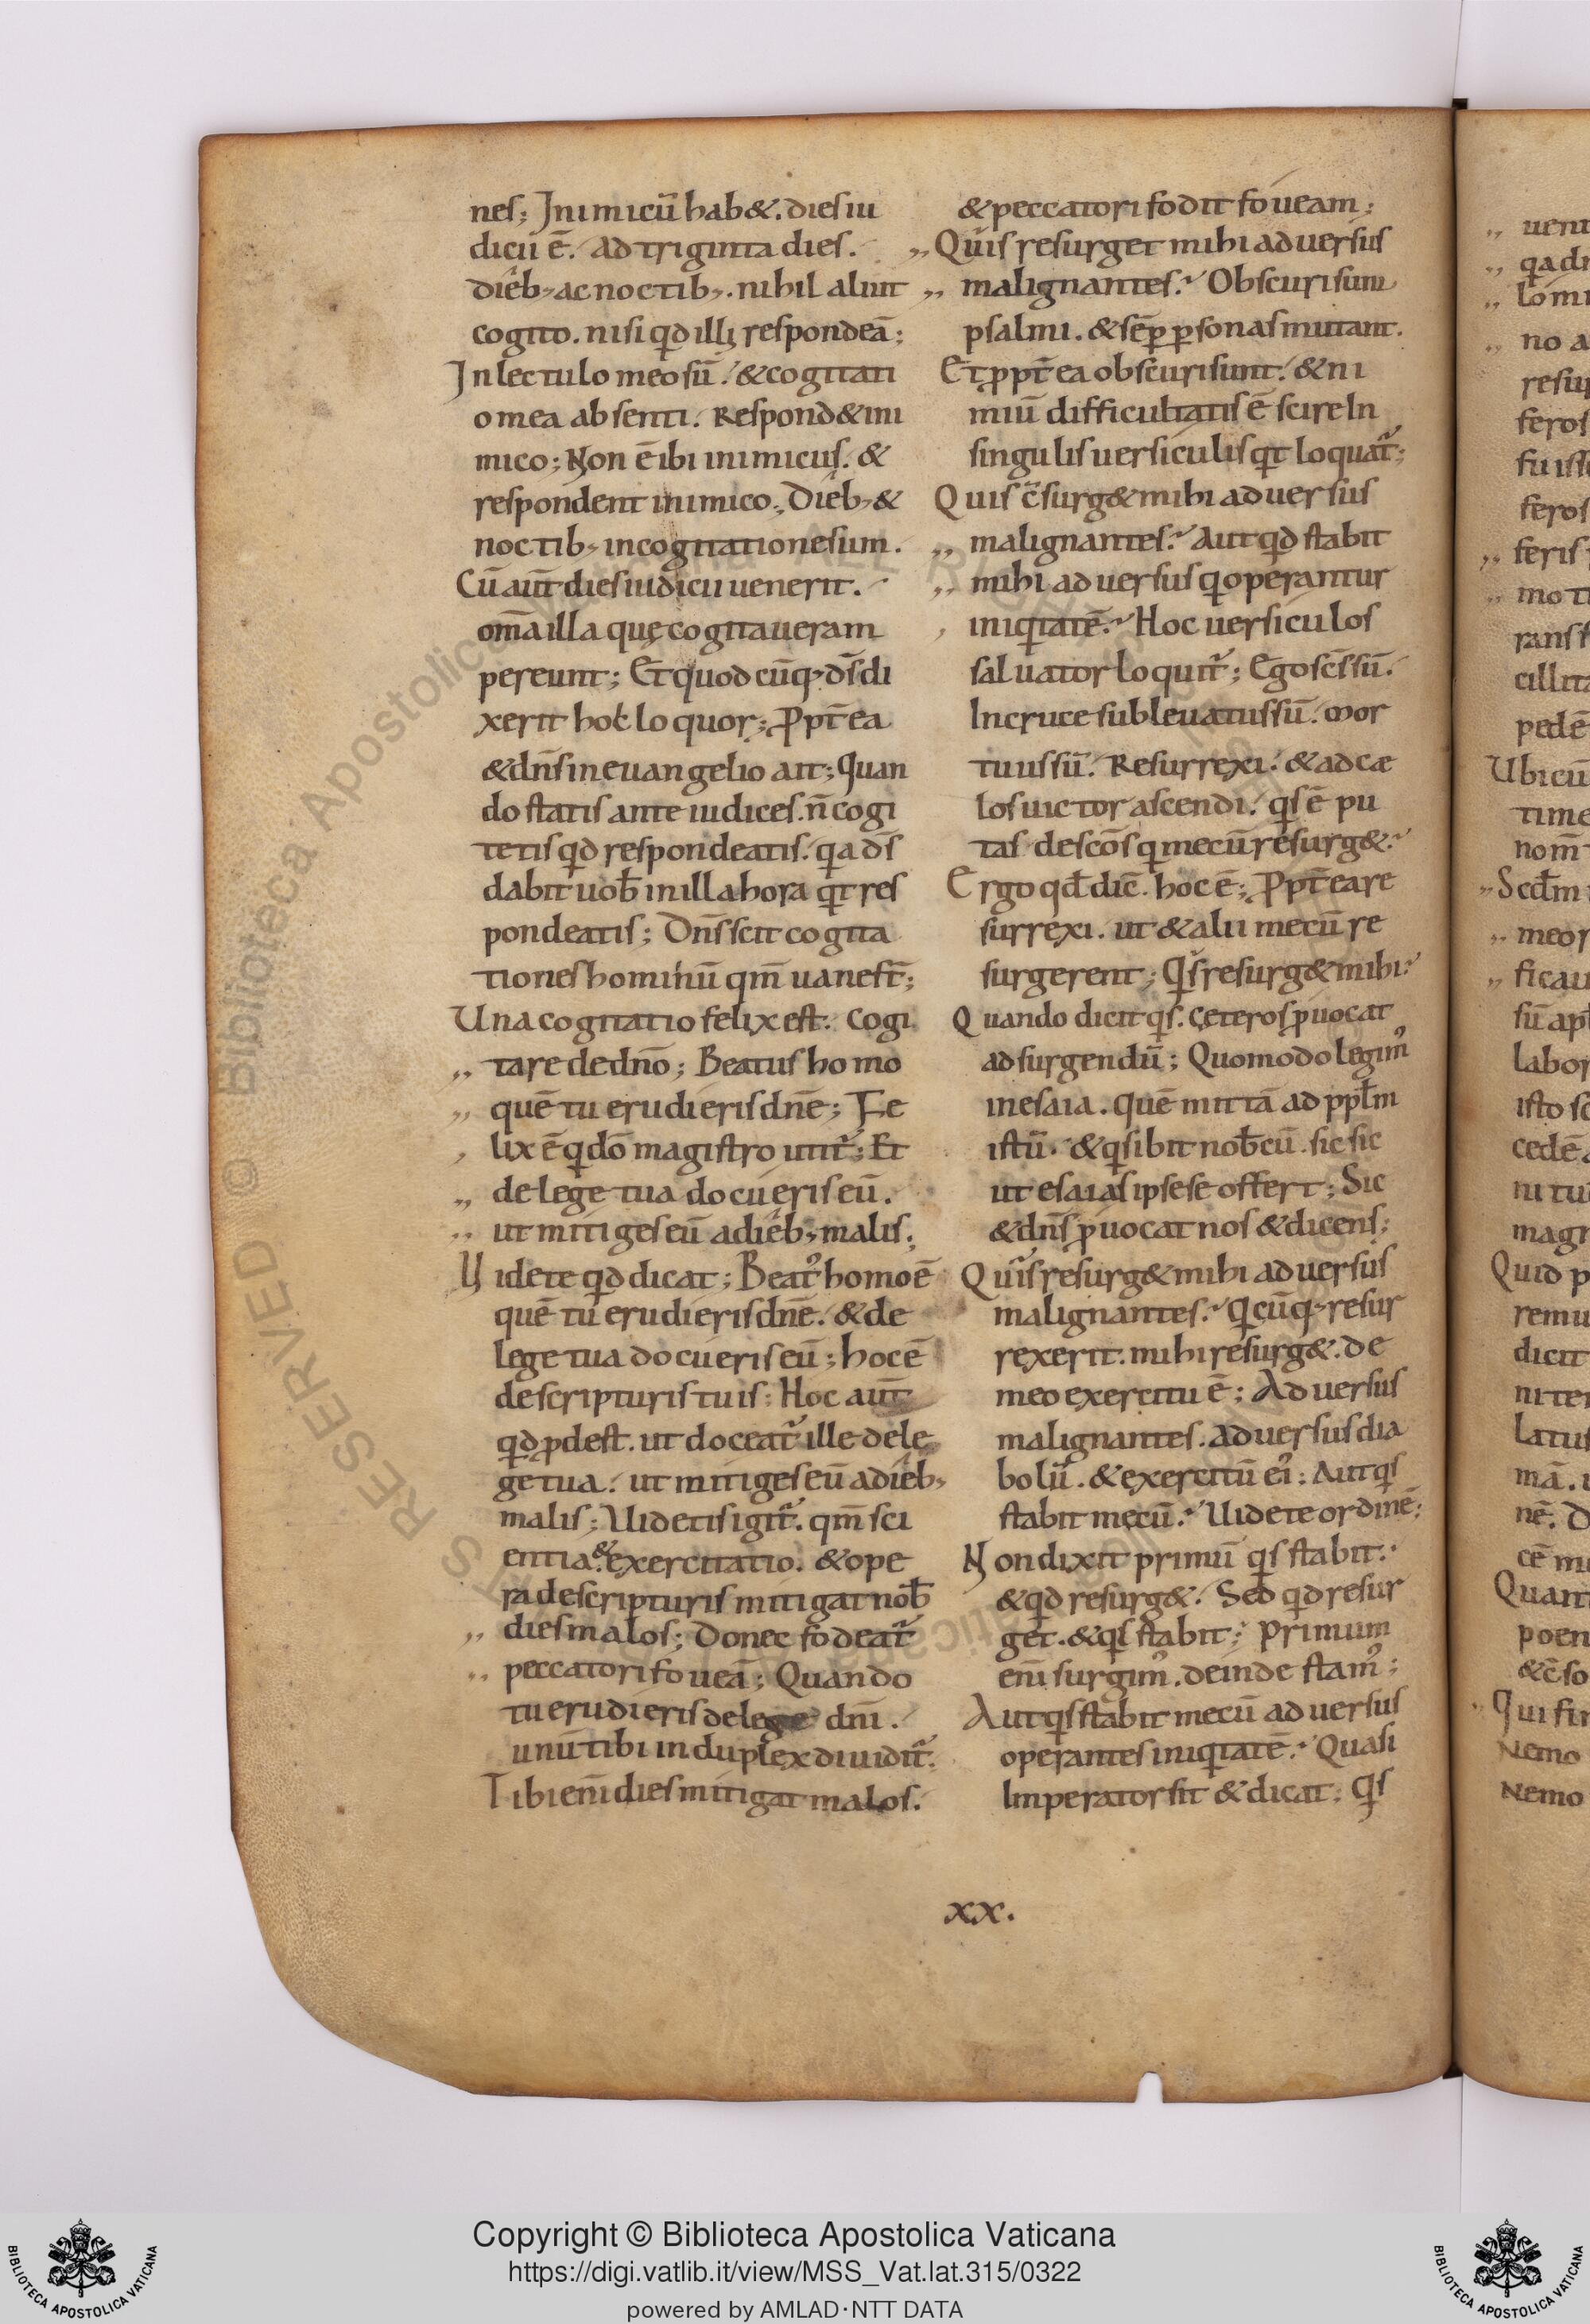 nes; Inimicū hab&. dies iu
dicii ē. Ad triginta dies.
dieb; ac noctib;. nihil aliut
cogito. nisi qđ illi respondeā;
In lectulo meo sū. & cogitati
o mea absenti. Respond& ini
mico; Non ē ibi inimicus. &
respondent inimico; Dieb; &
noctib; in cogitatione sum.
Cū aūt dies iudicii uenerit.
om̄a illa quę cogitaueram
pereunt; Et quodcūq; d̄s di
xerit hoc loquor; Ppt̄ea
& dn̄s in euangelio ait; Quan
do statis ante iudices. n̄ cogi
tetis qd respondeatis. qa d̄s
dabit uob̄ in illa hora qt res
pondeatis; Dn̄s scit cogita
tiones hominū qm̄ uane st̄;
Una cogitatio felix est. Cogi
,, tare de dn̄o; Beatus homo
,, quē tu erudieris dn̄e; Fe
, lix ē q dō magistro utit̄; Et
,, de lege tua docueris eū.
,, ut mitiges eū a dieb; malis;
Uidete qd dicat; Beat' homo ē
quē tu erudieris dn̄e. & de
lege tua docueris eū; hoc ē
de scripturis tuis; Hoc aūt
qd pdest. ut doceat̄ ille de le
ge tua. ut mitiges eū a dieb;
malis; Uidetis igit̄. qm̄ sci
entia & exercitatio. & ope
ra de scripturis mitigat nob̄
,, dies malos; Donec fodeat̄
,, peccatori foueā; Quando
tu erudieris de lege dn̄i.
unū tibi in duplex diuidit̄.
Tibi eni dies mitigat malos.
& peccatori fodit foueam;
,, Quis resurget mihi aduersus
,, malignantes? Obscuri sunt
psalmi. & sēp psonas mutant.
Et ppt̄ea obscuri sunt. & ni
miū difficultatis ē scire In
singulis uersiculis qt loquat̄;
Quis c̄surg& mihi aduersus
,, malignantes? Aut qd stabit
,, mihi aduersus q operantur
, iniqtatē? Hoc uersiculos
saluator loquit̄; Ego sc̄s sū.
In cruce subleuatus sū. mor
tuus sū. Resurrexi. & ad cæ
los uictor ascendi. qs ē pu
tas de sc̄os q mecū resurg&?
Ergo qd dic̄. hoc ē; Ppt̄ea re
surrexi. ut & alii mecū re
surgerent; Qs resurg& mihi?
Quando dicit qs. ceteros puocat
ad surgendū; Quomodo legim'
in esaia. Quē mittā ad pplm
istū. & qs ibit nob̄ cū. sic sic
ut esaias ipse se offert; Sic
& dn̄s puocat nos & dicens;
Quis resurg& mihi aduersus
malignantes? Qcūq; resur
rexerit. mihi resurg&. de
meo exercitu ē; Aduersus
malignantes. aduersus dia
bolū. & exercitū ei'; Aut qs
stabit mecū? Uidete ordinē;
Non dixit primū qs stabit.
& qd resurg&. Sed qd resur
get. & qs stabit; Primum
eni surgim'. deinde stam';
Aut qs stabit mecū aduersus
operantes iniqtatē? Quasi
Imperator sit & dicat; Qs
xx.
Copyright © Biblioteca Apostolica Vaticana
https://digi.vatlib.it/view/MSS_Vat.lat.315/0322
powered by AMLAD·NTT DATA
BIBLIOTECA APOSTOLICA VATICANA
BIBLIOTECA APOSTOLICA VATICANA